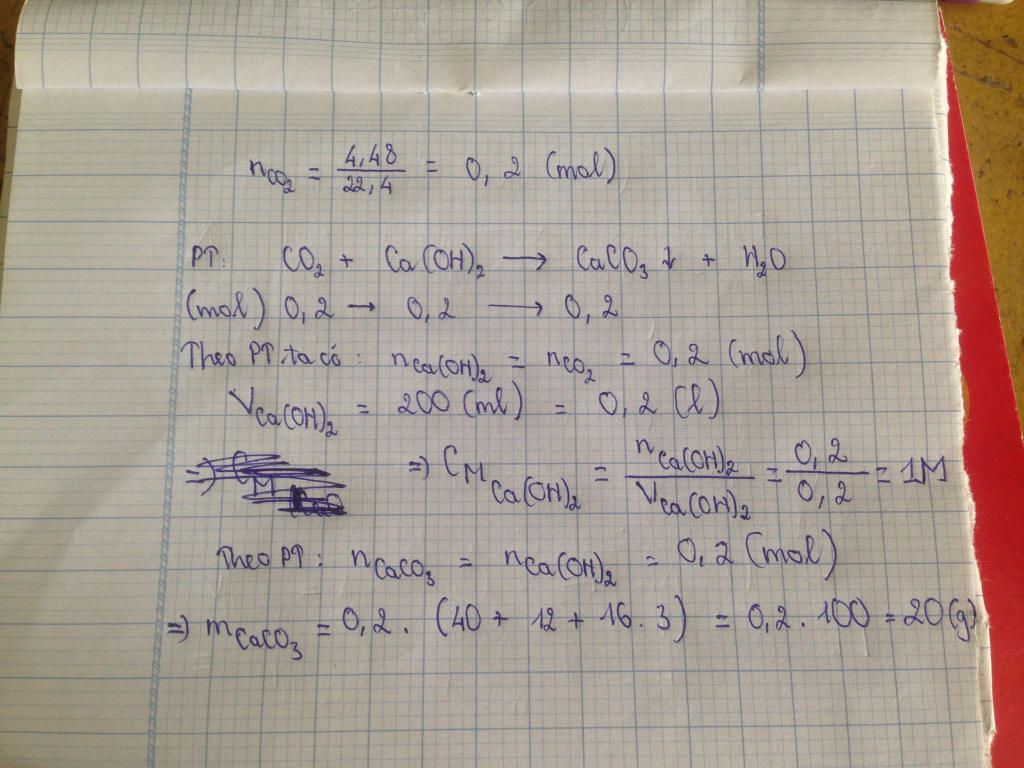 nCO₂ = 4,48/22,4 = 0,2 (mol)
PT: CO₂ + Ca(OH)₂ → CaCO₃↓ + H₂O
(mol) 0,2 → 0,2 → 0,2
Theo PT ta có: nCa(OH)₂ = nCO₂ = 0,2 (mol)
VCa(OH)₂ = 200 (ml) = 0,2 (l)
=> CM Ca(OH)₂ = nCa(OH)₂/VCa(OH)₂ = 0,2/0,2 = 1M
Theo PT: nCaCO₃ = nCa(OH)₂ = 0,2 (mol)
=> mCaCO₃ = 0,2 . (40 + 12 + 16 . 3) = 0,2 . 100 = 20 (g)